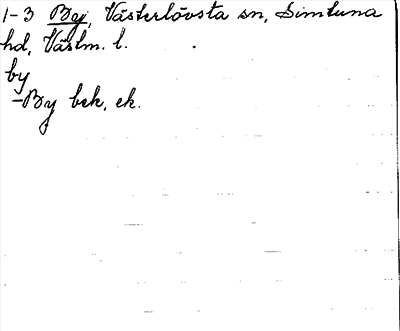 1-3 By, Västerlövsta sn, Simtuna
hd, Västm. l.
by
-By bek, ek.